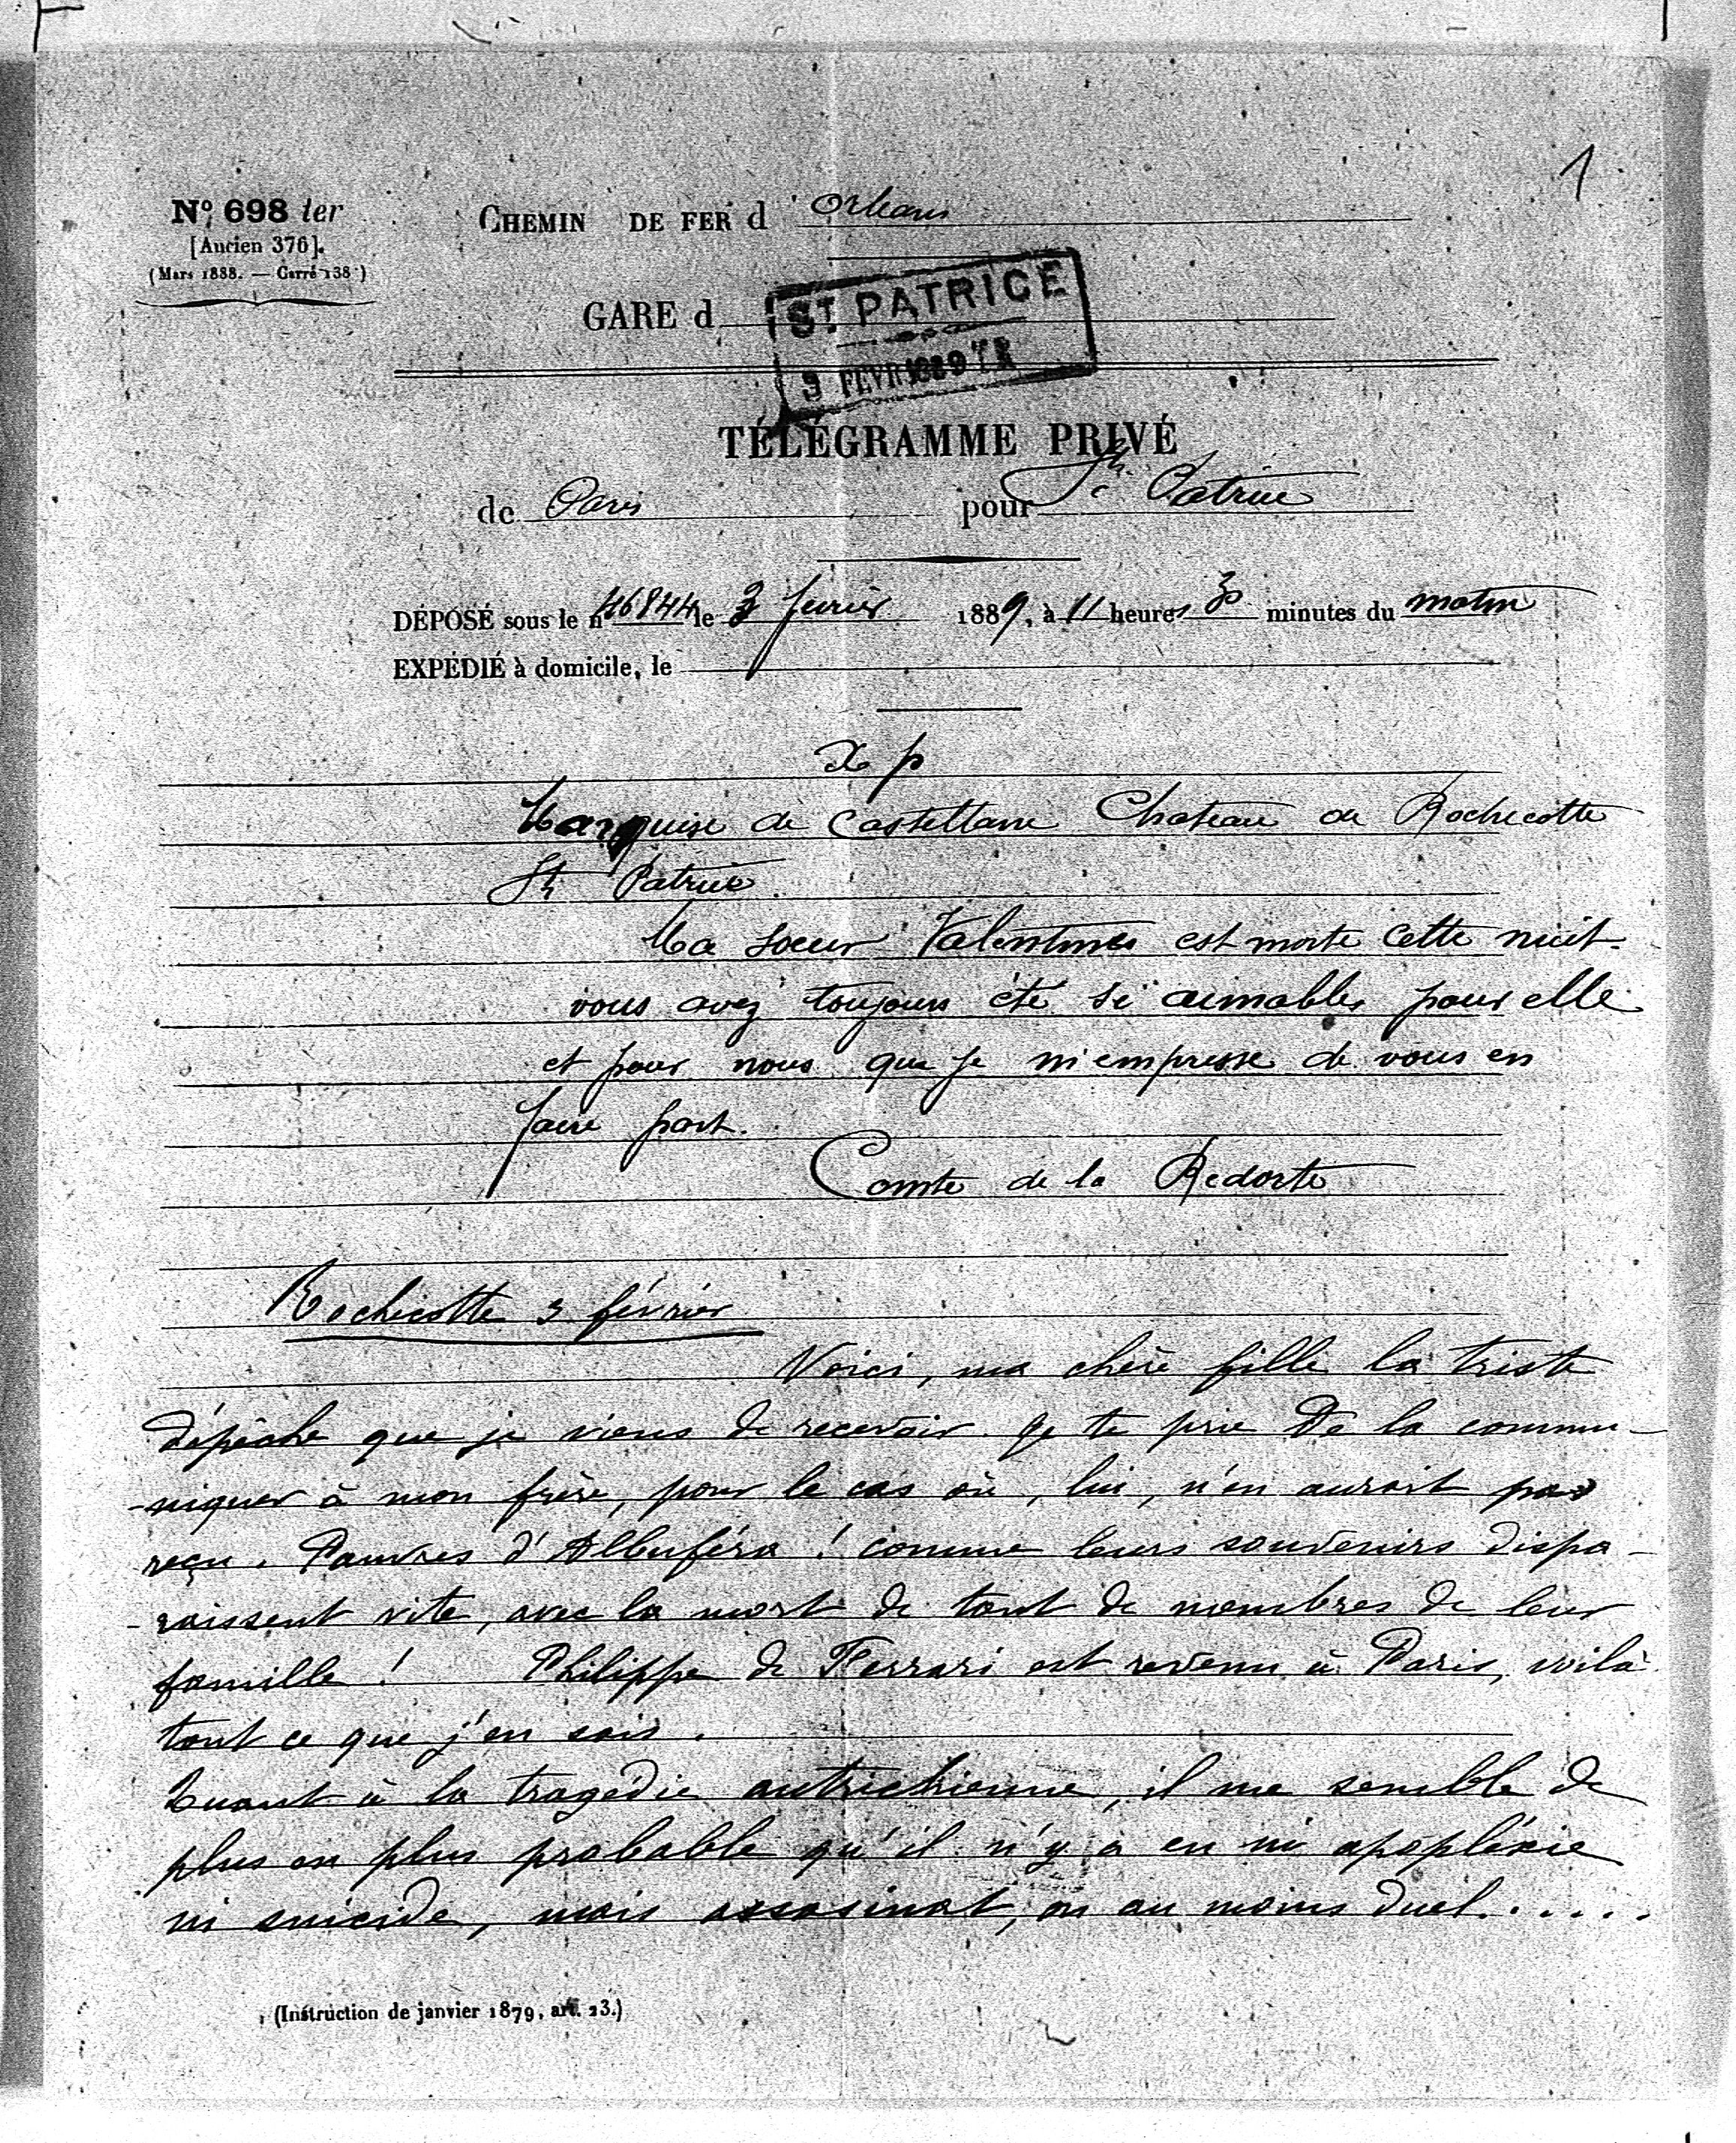 1
N° 698 ter
[Ancien 376].
(Mars 1888. — Carré 138)
CHEMIN DE FER d'Orleans
GARE d ST PATRICE
3 FEVR 1889
TÉLÉGRAMME PRIVÉ
de Paris pour St Patrice
DÉPOSÉ sous le n° 46844 le 3 fevrier 1889, à 11 heures 30 minutes du matin
EXPÉDIÉ à domicile, le
Xp
Marquise de Castellane Chateau de Rochecotte
St Patrice
Ma soeur Valentine est morte cette nuit
vous avez toujours été si aimables pour elle
et pour nous que je m'empresse de vous en
faire part.
Comte de la Redorte
Rochecotte 3 février
Voici, ma chère fille la triste
dépêche que je viens de recevoir. Je te prie de la commu-
-niquer à mon frère, pour le cas où, lui, n'en aurait pas
reçu. Pauvres d'Albuféra ! comme leurs souvenirs dispa-
-raissent vite, avec la mort de tant de membres de leur
famille ! Philippe de Ferrari est revenu à Paris, voilà
tout ce que j'en sais.
Quant à la tragédie autrichienne, il me semble de
plus en plus probable qu'il n'y a eu ni apopléxie
ni suicide, mais assasinat, ou au moins duel.....
(Instruction de janvier 1879, art. 23.)